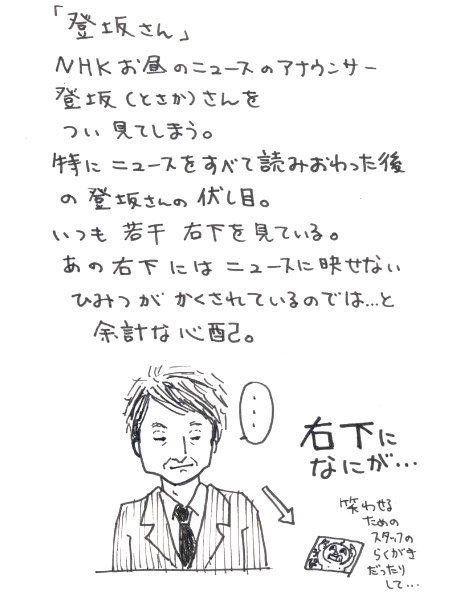 「登坂さん」
NHKお昼のニュースのアナウンサー
登坂(とさか)さんを
つい見てしまう。
特にニュースをすべて読みおわった後
の登坂さんの伏し目。
いつも若干右下を見ている。
あの右下にはニュースに映せない
ひみつがかくされているのでは…と
余計な心配。
…
右下に
なにが…
笑わせる
ための
スタッフの
らくがき
だったり
して…